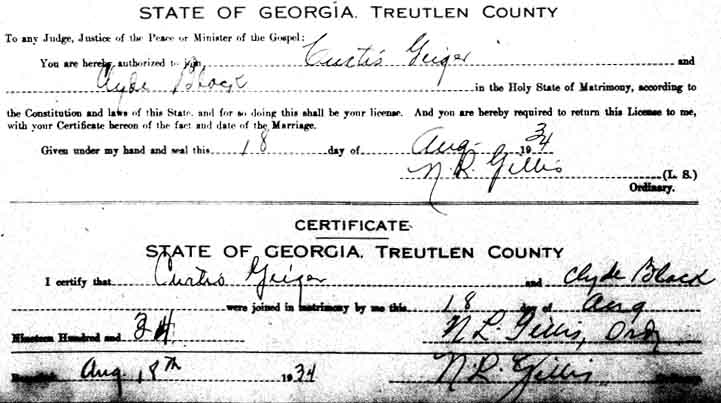 STATE OF GEORGIA, TREUTLEN COUNTY
To any Judge, Justice of the Peace or Minister of the Gospel:
You are hereby authorized to join, Curtis Geiger and
Clyde Black in the Holy State of Matrimony, according to
the Constitution and laws of this State, and for so doing this shall be your license. And you are hereby required to return this License to me,
with your Certificate hereon of the fact and date of the Marriage.
Given under my hand and seal this 18 day of Aug- 1934
Gillis (L. S.)
Ordinary.
CERTIFICATE
STATE OF GEORGIA, TREUTLEN COUNTY
I certify that Curtis Geiger and Clyde Black
were joined in matrimony by me this 18 day of Aug
Nineteen Hundred and 34 Gillis, Ordy
Recorded Aug. 18th 1934 Gillis